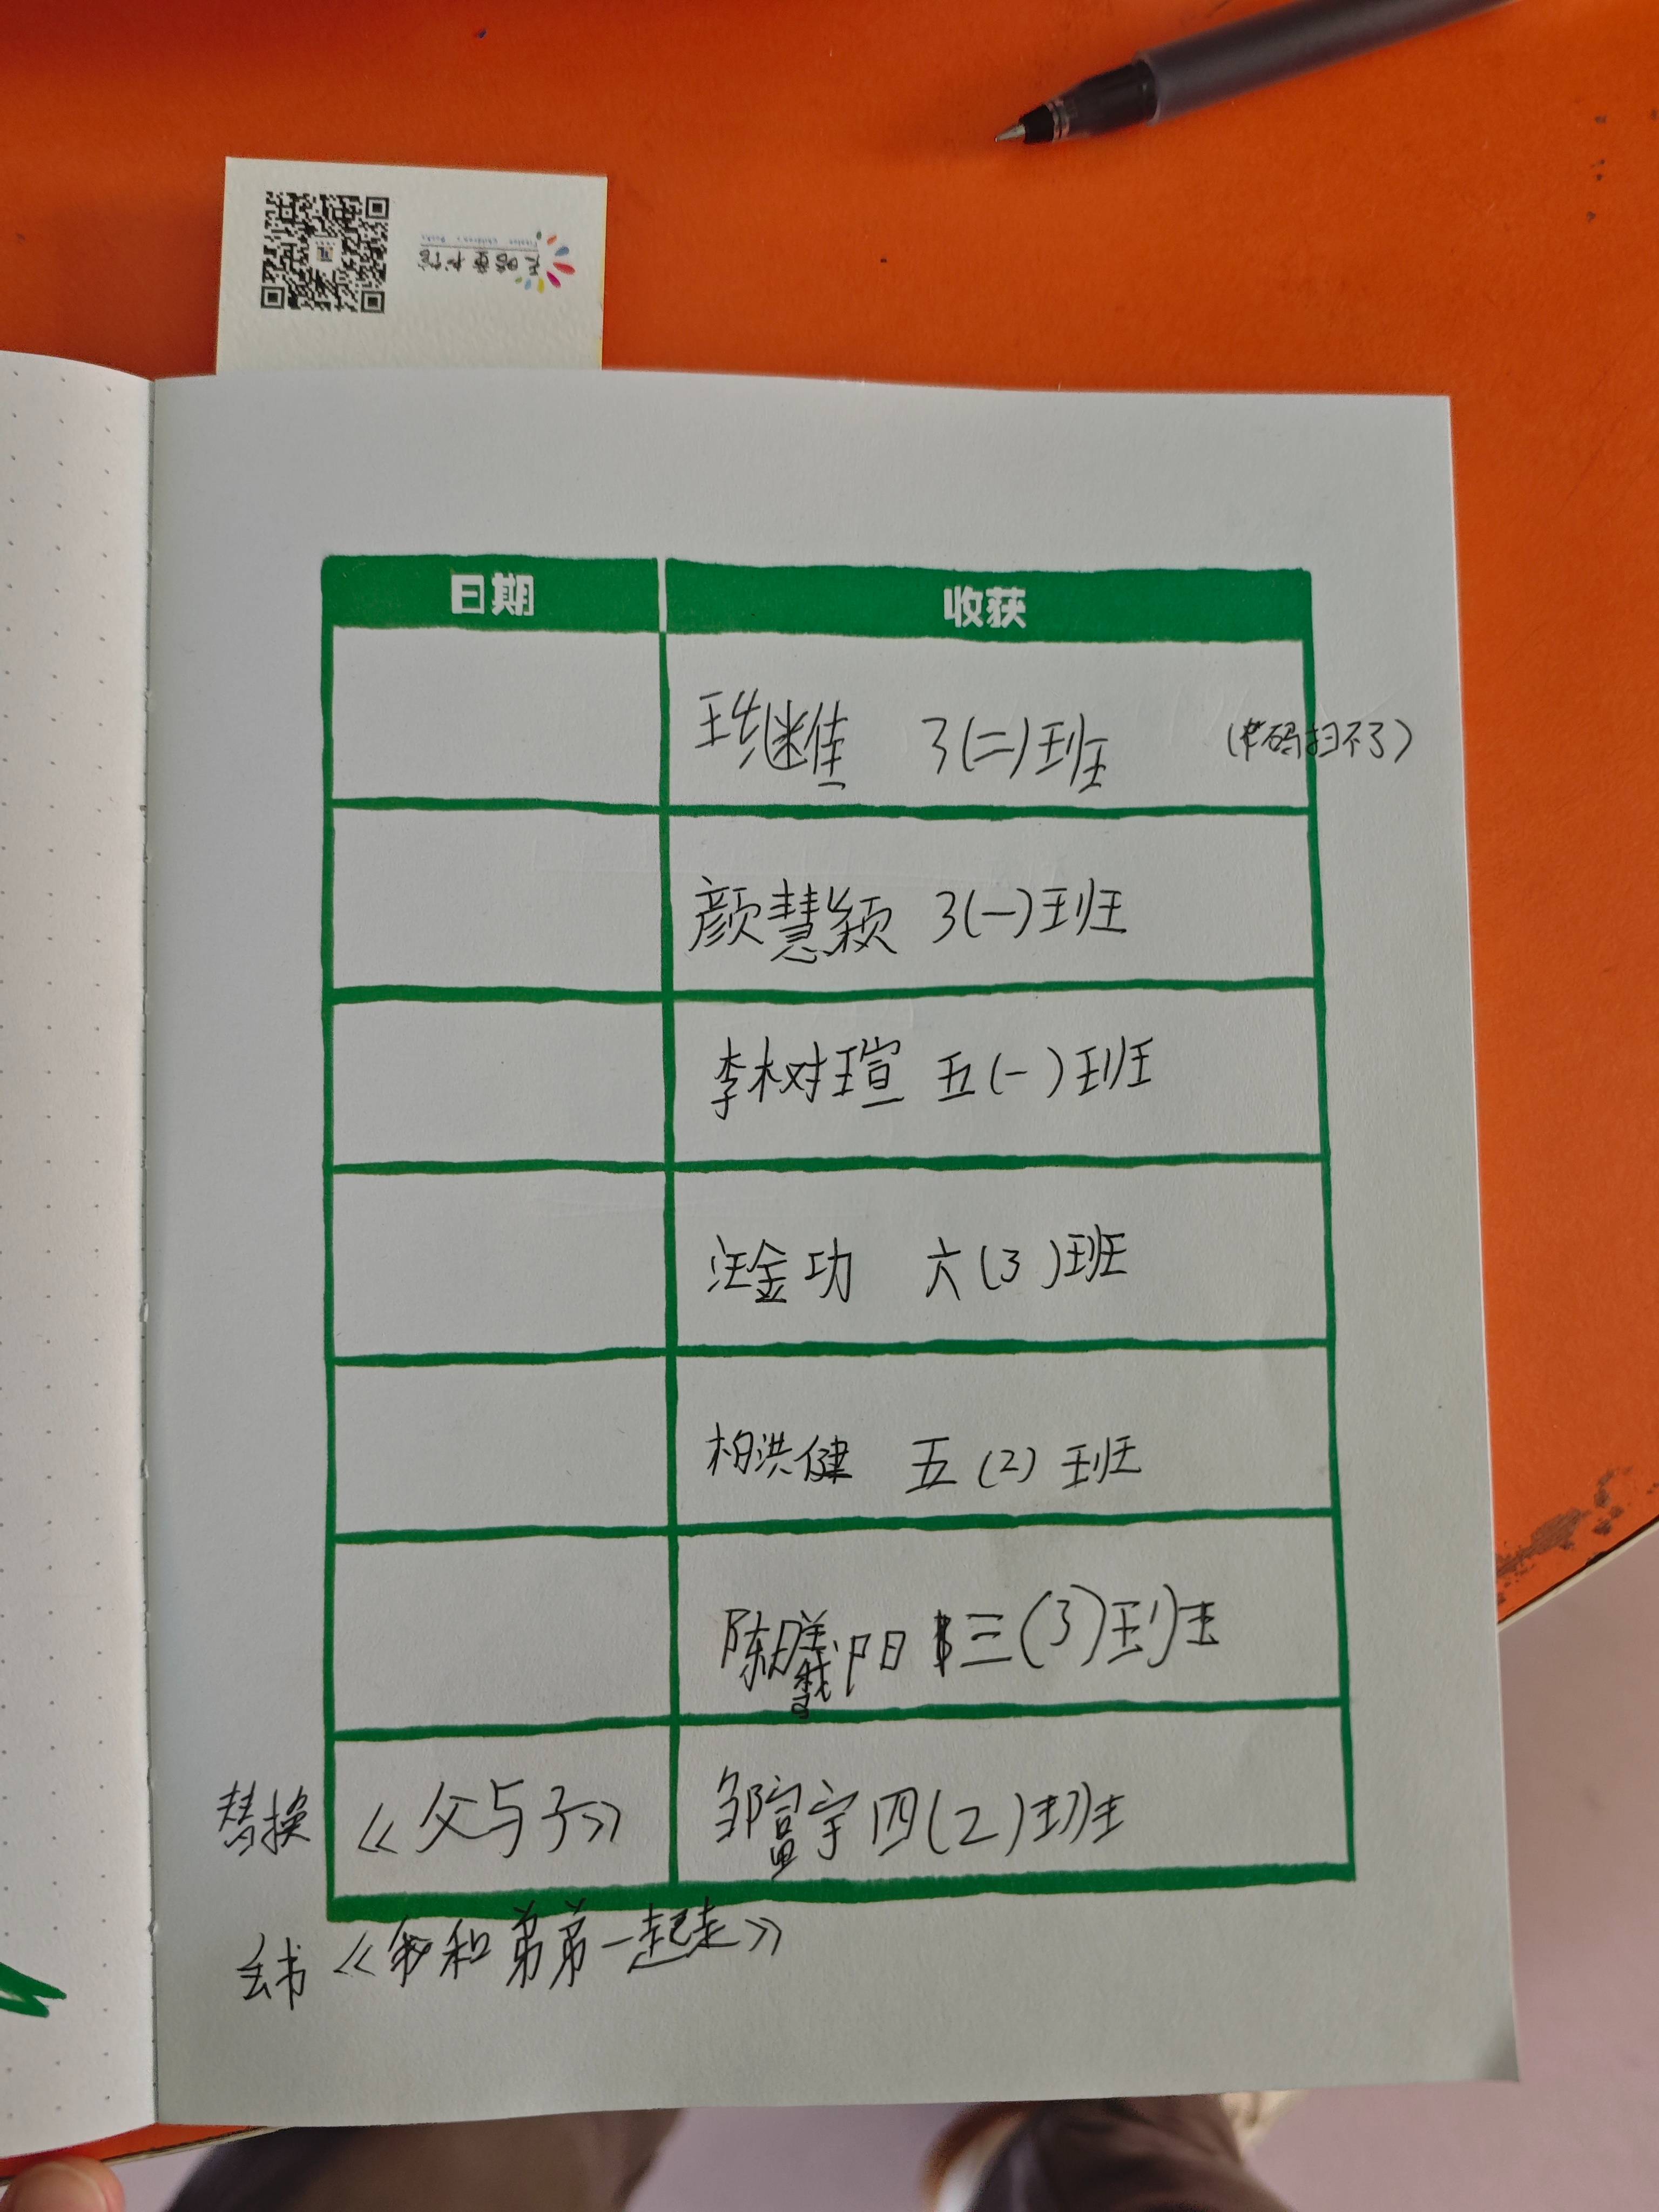 日期 收获
3(二)班 (码扫不了)
颜慧颖 3(一)班
李树瑄 五(一)班
汪金功 六(3)班
柏洪健 五(2)班
陈曦阳 三(3)班
替换 《父与子》 邹富宇 四(2)班
去书《和弟弟一起走》